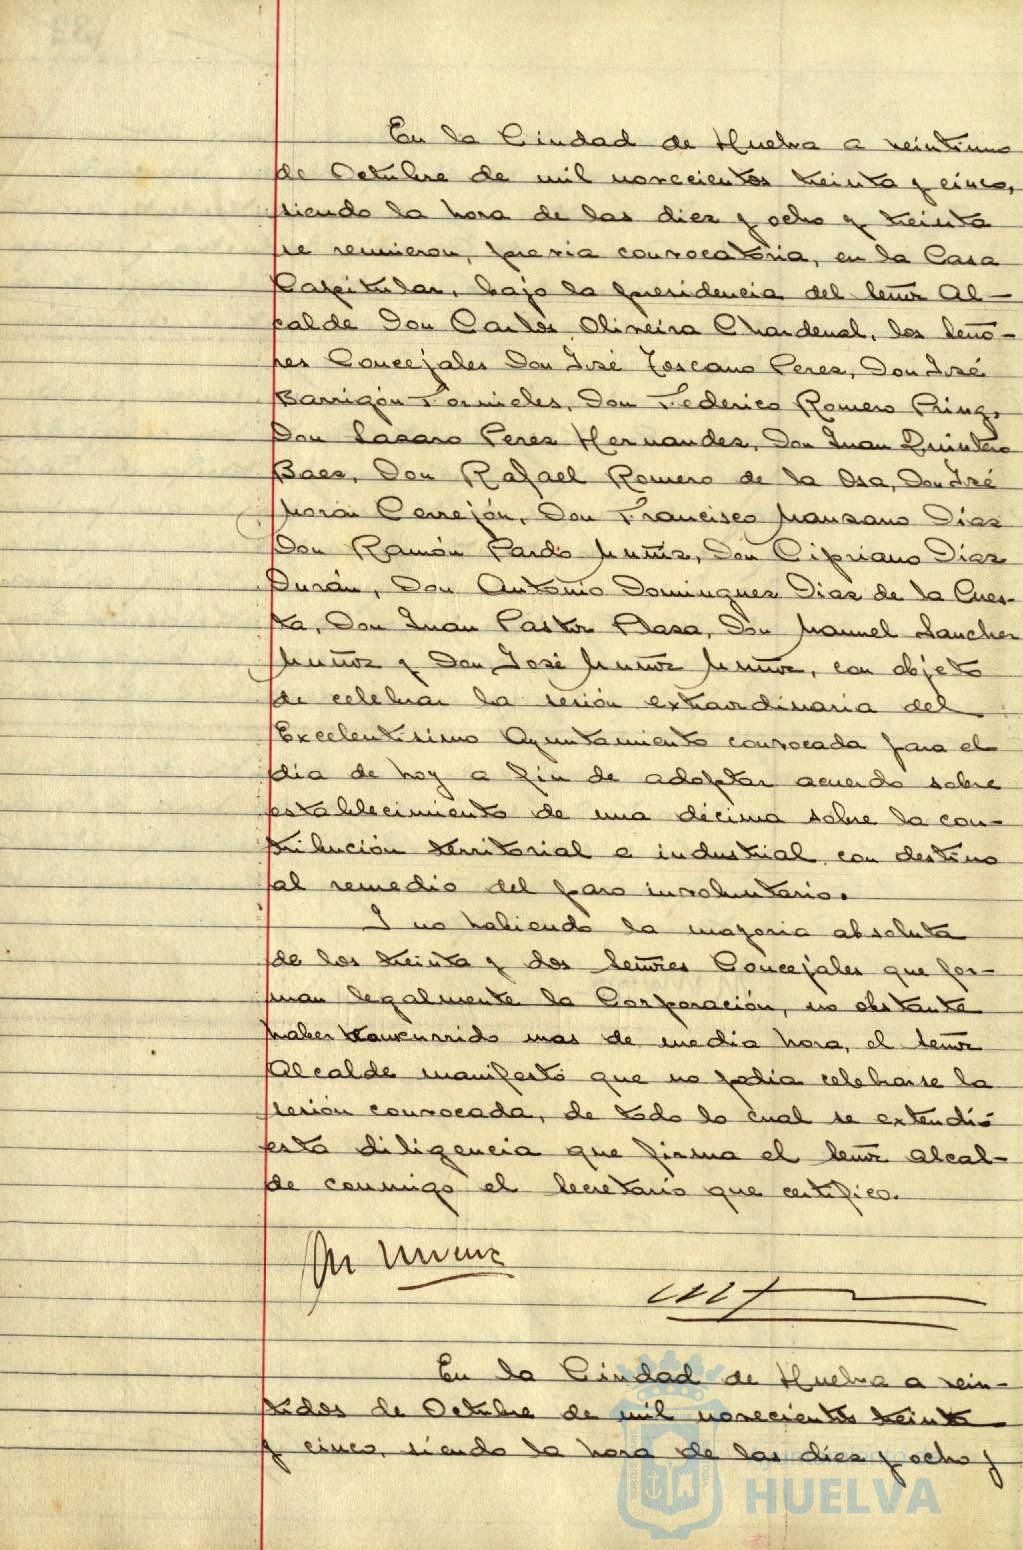 En la Ciudad de Huelva a veintiuno
de Octubre de mil novecientos treinta y cinco,
siendo la hora de las diez y ocho y treinta
se reunieron, previa convocatoria, en la Casa
Capitular, bajo la presidencia del Señor Al-
calde Don Carlos Oliveira Chardenal, los Seño-
res Concejales Don José Toscano Perez, Don José
Barrigón Fornieles, Don Federico Romero Pring,
Don Lazaro Perez Hernandez, Don Juan Quintero
Baez, Don Rafael Romero de la Osa, Don José
Morón Cerrejón, Don Francisco Manzano Díaz
Don Ramón Pardo Muñiz, Don Cipriano Díaz
Durán, Don Antonio Dominguez Diaz de la Cues-
ta, Don Juan Pastor Dasa, Don Manuel Sanchez
Muñoz y Don José Muñoz Muñoz, con objeto
de celebrar la sesión extraordinaria del
Excelentisimo Ayuntamiento convocada para el
día de hoy a fin de adoptar acuerdo sobre
establecimiento de una décima sobre la con-
tribución territorial e industrial con destino
al remedio del paro involuntario.
Y no habiendo la mayoria absoluta
de los treinta y dos Señores Concejales que for-
man legalmente la Corporación, no obstante
haber transcurrido mas de media hora, el Señor
Alcalde manifestó que no podia celebrarse la
sesión convocada, de todo lo cual se extendió
esta diligencia que firma el Señor Alcal-
de conmigo el Secretario que certifico.
En la Ciudad de Huelva a vein-
tidos de Octubre de mil novecientos treinta
y cinco, siendo la hora de las diez y ocho y
HUELVA